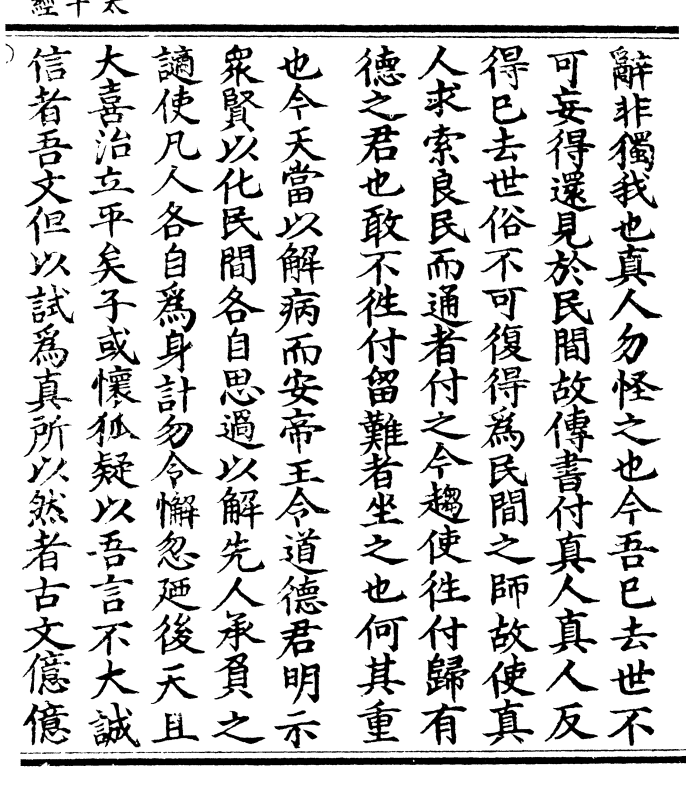 太平經
辭非獨我也真人勿怪之也今吾已去世不
可妄得還見於民間故傳書付真人真人反
得已去世俗不可復得爲民間之師故使真
人求索良民而通者付之今趨使往付歸有
德之君也敢不往付留難者坐之也何其重
也今天當以解病而安帝王令道德君明示
衆賢以化民間各自思過以解先人承負之
謫使凡人各自爲身計勿令懈忽廼後天且
大喜治立平矣子或懷狐疑以吾言不大誠
信者吾文但以試爲真所以然者古文億億